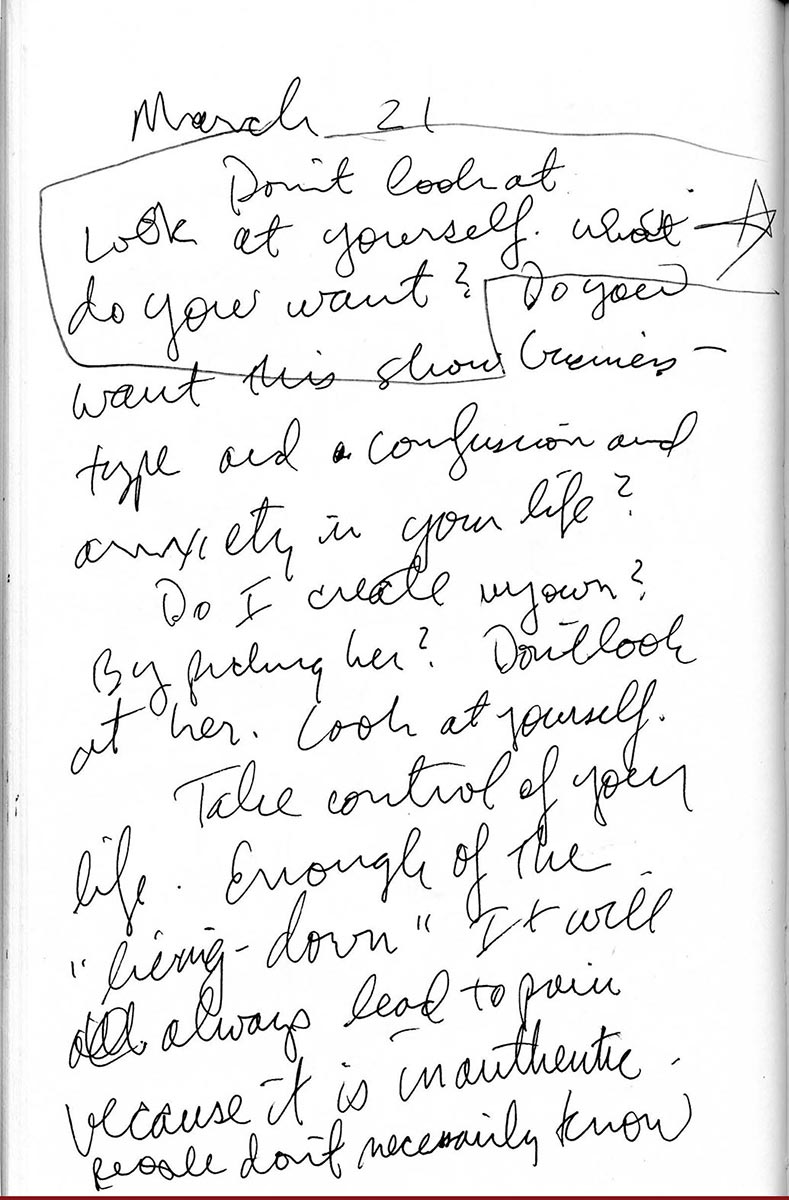 March 21
Don't look at
Look at yourself. What
do you want? Do you
want this show business-
type and a confusion and
anxiety in your life?
Do I create my own?
By picking her? Don't look
at her. Look at yourself.
Take control of your
life. Enough of the
"living-down" It will
always lead to pain
because it is inauthentic.
People don't necessarily know